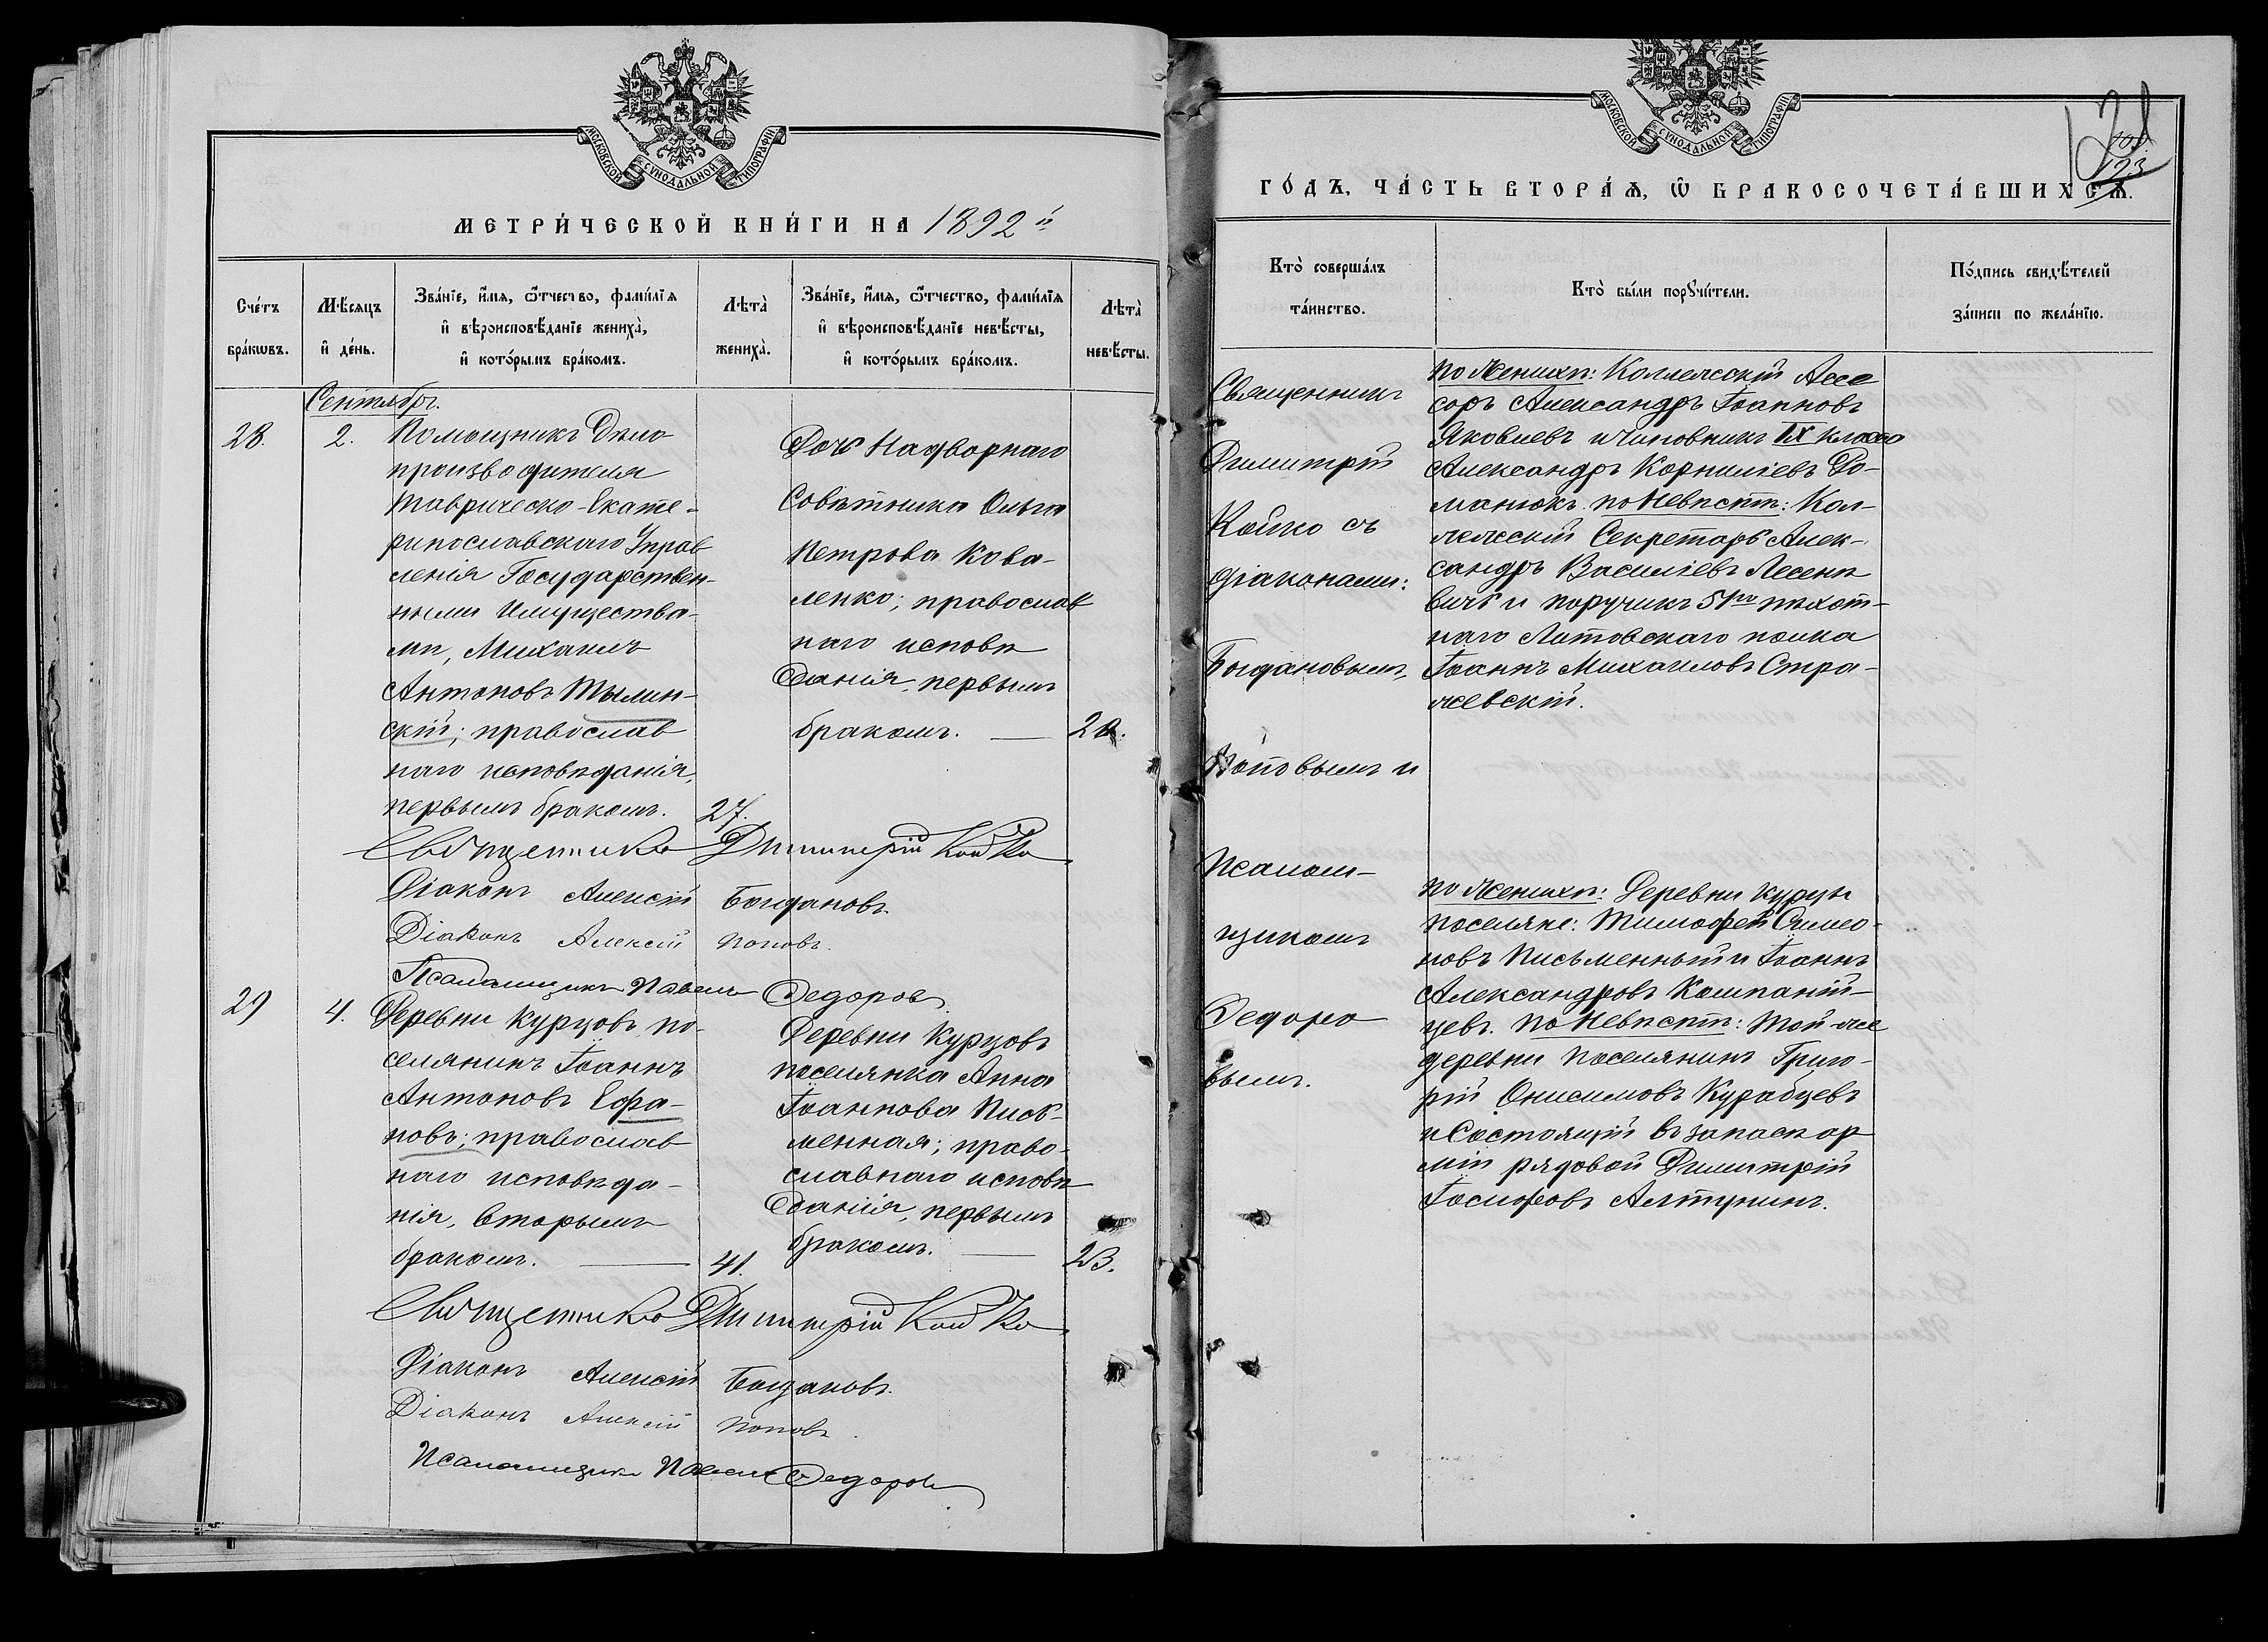 МОСКОВСКОЙ СУНОДАЛЬНОЙ ТИПОГРАФІИ
МЕТРИ́ЧЕСКОЙ КНИ́ГИ НА 1892 й
Сче́тъ бра́кωвъ.
Мѣ́сяцъ и҆ де́нь.
Зва́нїе, и҆́мя, ѻ҆́тчество, фами́лїя
и҆ вѣроисповѣ́данїе жениха̀,
и҆ кото́рымъ бра́комъ.
Лѣта̀ жениха̀.
Зва́нїе, и҆́мя, ѻ҆́тчество, фами́лїя
и҆ вѣроисповѣ́данїе невѣ́сты,
и҆ кото́рымъ бра́комъ.
Лѣта̀ невѣ́сты.
Сентябрь.
28.
2.
Помощникъ Дѣло
производителя
Таврическо-Екате-
ринославскаго Управ
ленія Государствен-
ными Имущества-
ми, Михаилъ
Антоновъ Тылин-
скій; православ
наго исповѣданія,
первымъ бракомъ.
27.
Дочь Надворнаго
Совѣтника Ольга
Петрова Кова-
ленко; православ
наго исповѣ
данія, первымъ
бракомъ.
Священникъ Димитрій Койко
Діаконъ Алексій Богдановъ.
Діаконъ Алексій Поповъ.
Псаломщикъ Павелъ Федоровъ
29
4.
Деревни Курцовъ по-
селянинъ Іоаннъ
Антоновъ Ефа-
новъ; православ
наго исповѣда-
нія, вторымъ
бракомъ.
41.
Деревни Курцовъ
поселянка Анна
Іоаннова Пись-
менная; право-
славнаго исповѣ
данія, первымъ
бракомъ.
23.
Священникъ Димитрій Койко
Діаконъ Алексій Богдановъ.
Діаконъ Алексій Поповъ.
Псаломщикъ Павелъ Федоровъ
МОСКОВСКОЙ СУНОДАЛЬНОЙ ТИПОГРАФІИ
123
ГО́ДЪ, ЧА́СТЬ ВТОРА́Ѧ, Ѽ БРАКОСОЧЕТА́ВШИХСѦ.
Кто̀ соверша́лъ
та́инство.
Кто̀ бы́ли порꙋчи́тели.
По́дпись свидѣ́телей
за́писи по жела́нїю.
Священникъ
Димитрій
Койко съ
діаконами:
Богдановымъ,
Поповымъ и
Псалом-
щикомъ
Федоро
вымъ.
По женихѣ: Коллежскій Ассе
соръ Александръ Іоанновъ
Яковлевъ и чиновникъ IX класса
Александръ Корниліевъ До-
манюкъ. По невѣстѣ: Кол-
лежскій Секретарь Алек-
сандръ Василіевъ Лесене
вичъ и поручикъ 51го пѣхот-
наго Литовскаго полка
Іоаннъ Михаиловъ Стра-
жевскій.
По женихѣ: Деревни Курцы
поселяне: Тимофей Симео-
новъ Письменный и Іоаннъ
Александровъ Компаній-
цевъ. По невѣстѣ: Той-же
деревни поселянинъ Григо-
рій Онисимовъ Курабцевъ
и состоящій въ запасѣ ар
міи рядовой Димитрій
Іосифовъ Алтунинъ.